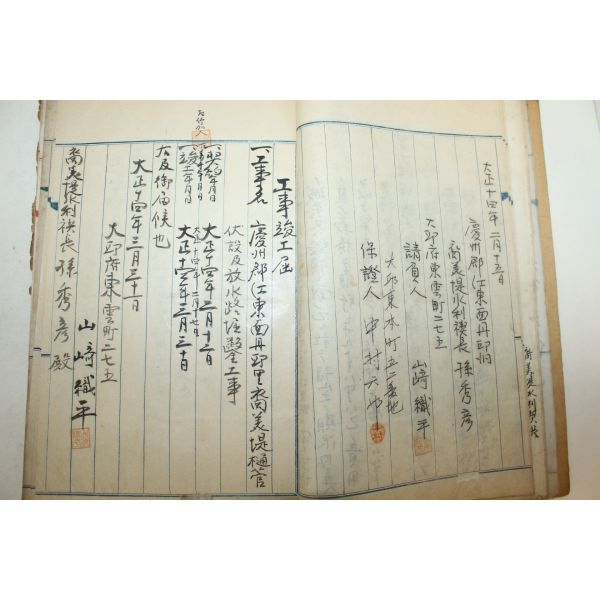 大正十四年二月十五日
慶州郡江東面丹邱洞
裔美堤水利稧長 孫秀彦
大邱府東雲町二七五
請負人 山﨑織平
大邱東本町五二番地
保證人 中村
工事竣工届
一、工事名 慶州郡江東面丹邱里裔美堤樋管
伏設及放水路隧鑿工事
一、契約年月日 大正十四年二月十二日
大正十四年二月十七日
一、竣工年月日 大正十四年三月三十日
右及御届候也
大正十四年三月三十一日
大邱府東雲町二七五
山﨑織平
裔美堤水利稧長 孫秀彦殿